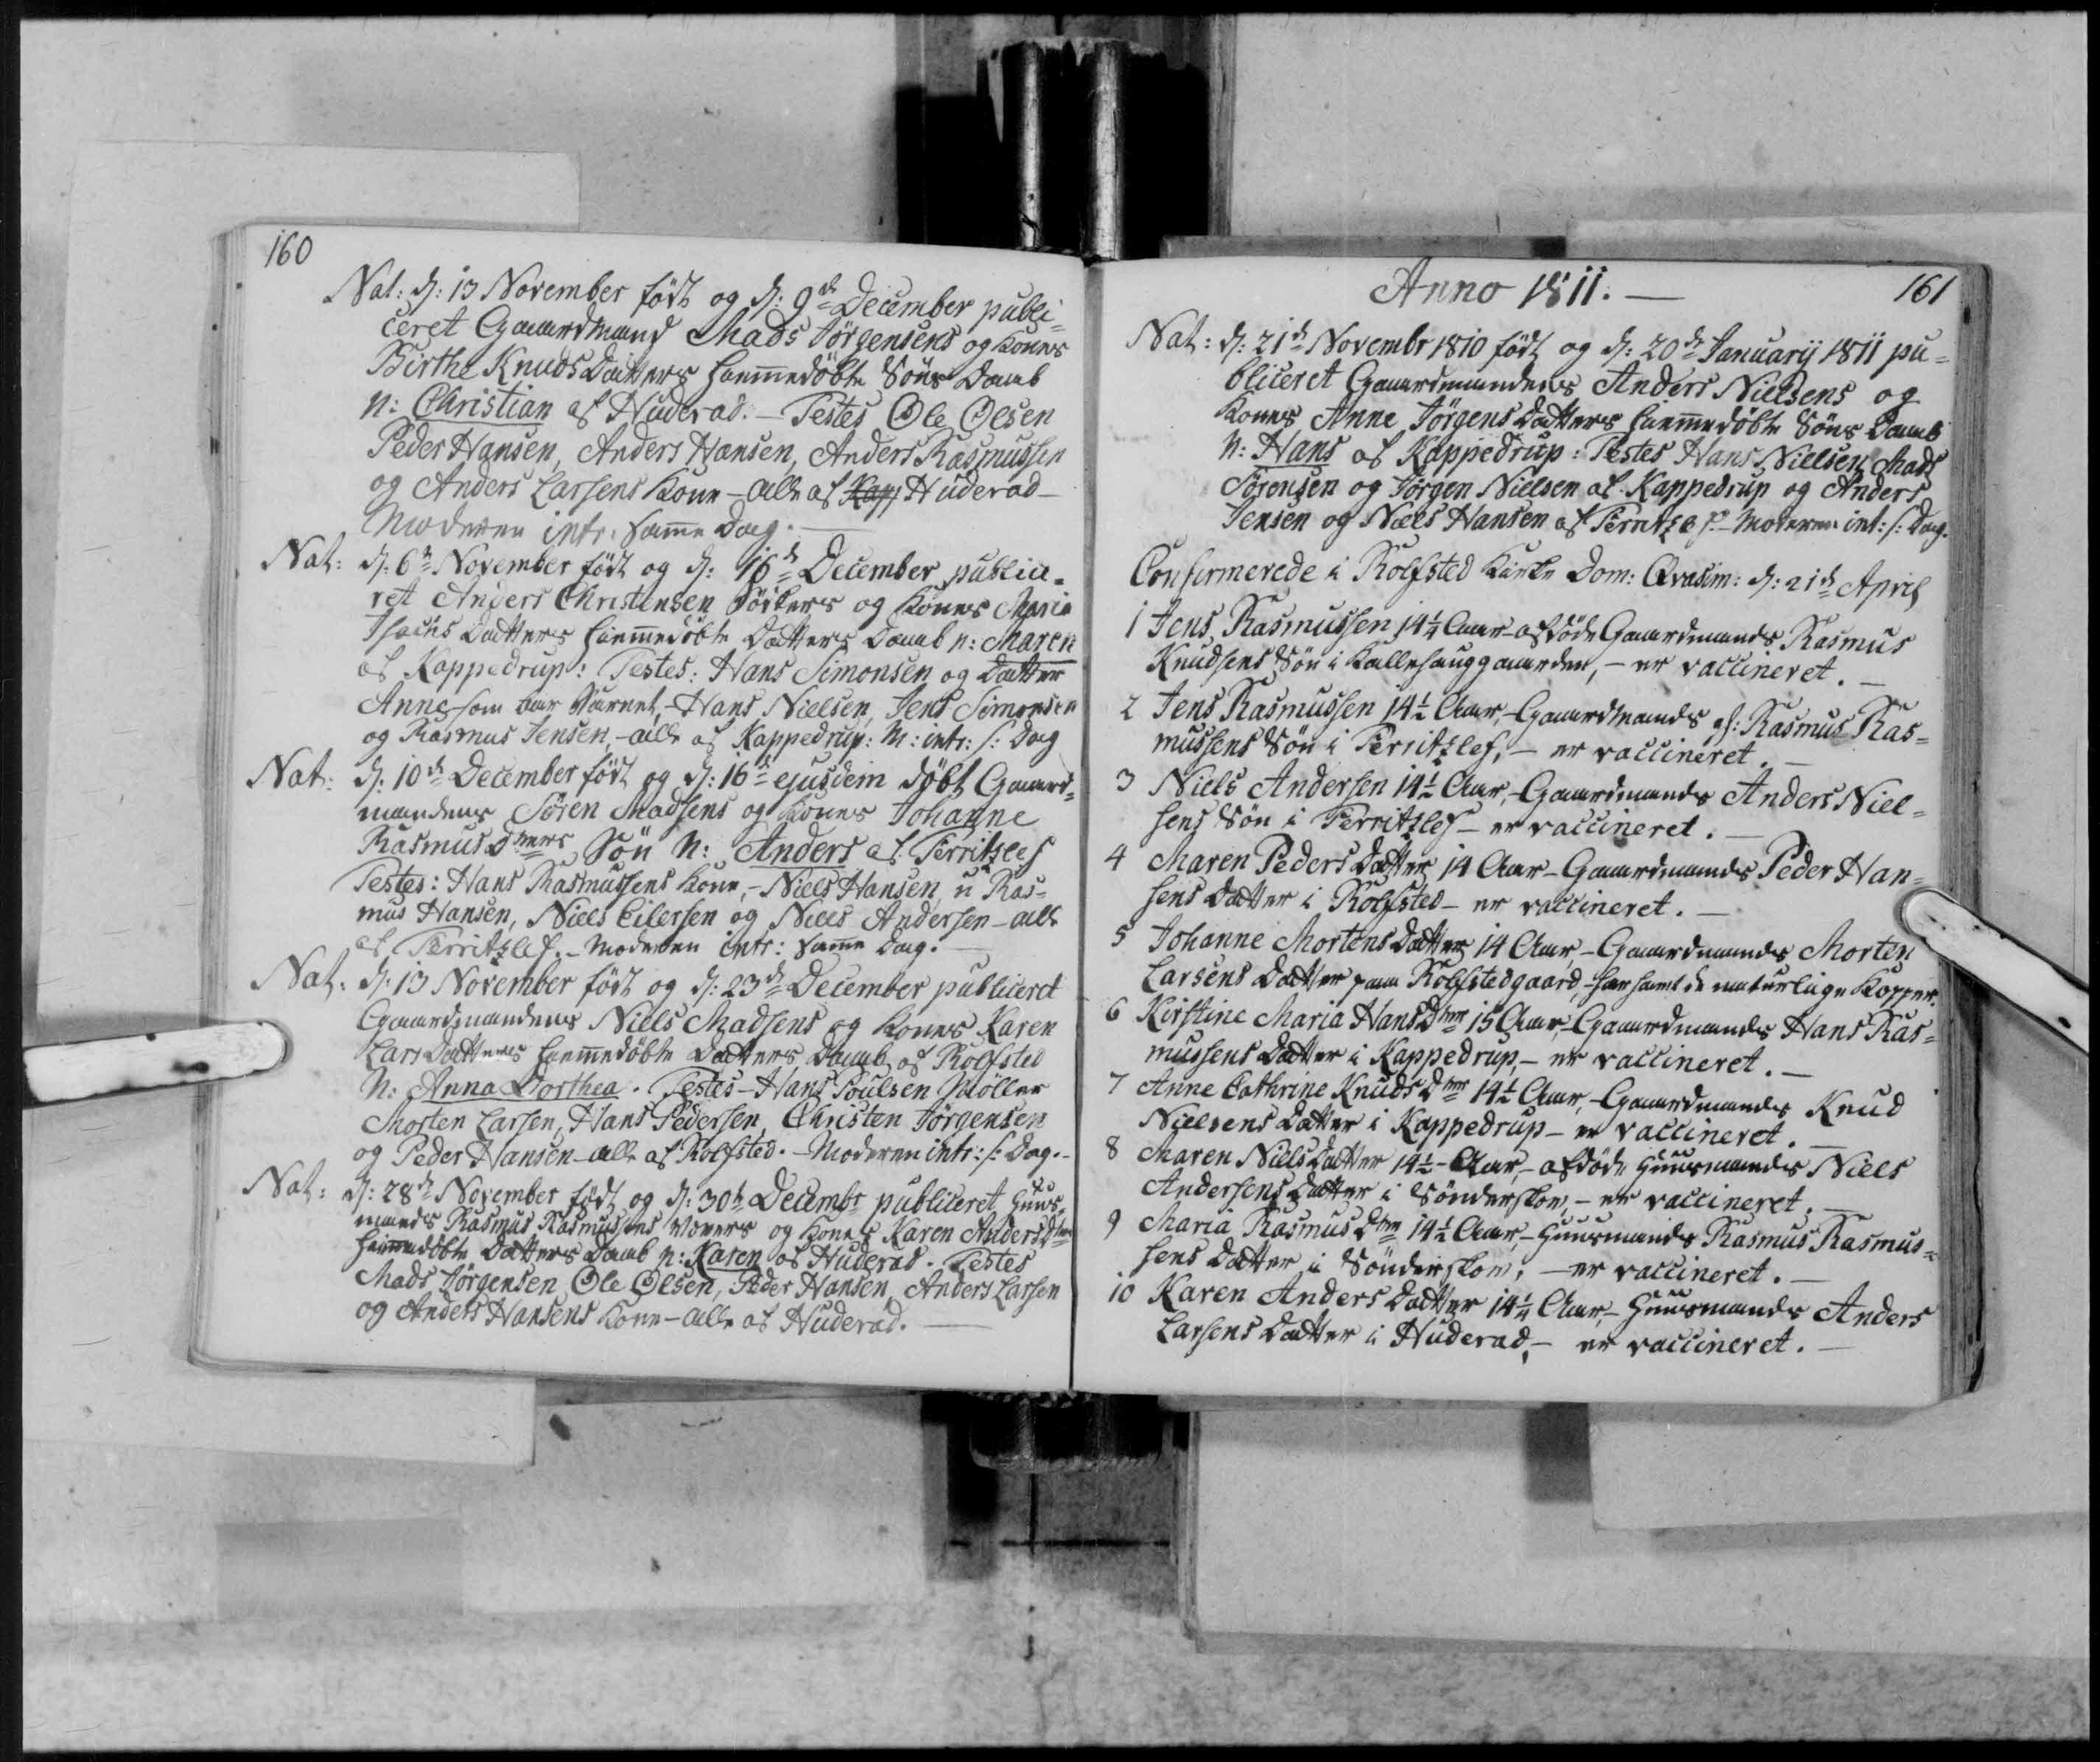 160
Nat: d: 13 November födt og d: 9de December publi=
ceret Gaardmand Mads Jörgensens og Kones
Birthe Knuds Datters hiemmedöbte Söns Daab
n: Christian af Huderad. - Testes Ole Olsen
Peder Hansen, Anders Hansen, Anders Rasmussen
og Anders Larsens Kone - alle af Kapp Huderad -
Moderen intr: samme Dag. -
Nat: d: 6te November födt og d: 16de December publice-
ret Anders Christensen Födkers og Kones Maria
Isachs Datters hiemmedöbte Datters Daab n: Maren
af Kappedrup: Testes: Hans Simonsen og Datter
Anne som bar Barnet, - Hans Nielsen, Jens Simonsen
og Rasmus Jensen, - alle af Kappedrup: M: intr: s: Dag
Nat: d: 10de December födt og d: 16de ejusdem döbt Gaard=
mandens Sören Madsens og Kones Johanne
Rasmus Dtters Sön N: Anders af Ferritzlef
Testes: Hans Rasmussens Kone, - Niels Hansen, u Ras=
mus Hansen, Niels Eilersen og Niels Andersen - alle
af Ferritzlef. - Moderen intr: samme Dag. -
Nat: d: 13 November födt og d: 23de December publiceret
Gaardmandens Niels Madsens og Kones Karen
Lars Datters hiemmedöbte Datters Daab af Rolfsted
N: Anna Dorthea. Testes - Hans Poulsen Möller
Morten Larsen, Hans Pedersen, Christen Jörgensen
og Peder Hansen - alle af Rolfsted. - Moderen intr: s: Dag. -
Nat: d: 28de November födt og d: 30te Decembr publiceret Huus-
mands Rasmus Rasmussens Wævers og Kones Karen Anders Dtters
hiemmedöbte Datters Daab n: Karen af Huderad. Testes
Mads Jörgensen, Ole Olsen, Peder Hansen, Anders Larsen
og Anders Hansens Kone - alle af Huderad. -
Anno 1811. -
161
Nat: d: 21de Novembr 1810 födt og d: 20de Januarij 1811 pu=
bliceret Gaardmandens Anders Nielsens og
Kones Anne Jörgens Datters hiemmedöbte Söns Daab
N: Hans af Kappedrup: Testes Hans Nielsen, Mads
Sörensen og Jörgen Nielsen af Kappedrup og Anders
Jensen og Niels Hansen af Ferritzlef - Moderen int: s: Dag.
Confirmerede i Rolfsted Kirke Dom: Qvasim: d: 21de April
1 Jens Rasmussen 14¼ Aar - afdöde Gaardmands Rasmus
Knudsens Sön i Kallehauggaarden, - er vaccineret. -
2 Jens Rasmussen 14½ Aar, - Gaardmands gl: Rasmus Ras=
mussens Sön i Ferritzlef, - er vaccineret. -
3 Niels Andersen 14½ Aar, - Gaardmands Anders Niel=
sens Sön i Ferritzlef - er vaccineret. -
4 Maren Peders Datter 14 Aar - Gaardmands Peder Han=
sens Datter i Rolfsted - er vaccineret. -
5 Johanne Mortens Datter 14 Aar, - Gaardmands Morten
Larsens Datter paa Rolfstedgaard, - har havt de naturlige Kopper.
6 Kirstine Maria Hans Dtter 15 Aar, - Gaardmands Hans Ras=
mussens Datter i Kappedrup, - er vaccineret. -
7 Anne Cathrine Knuds Dtter 14½ Aar, - Gaardmands Knud
Nielsens Datter i Kappedrup - er vaccineret. -
8 Maren Niels Datter 14½ - Aar, - afdöde Huusmands Niels
Andersens Datter i Sönderskov, - er vaccineret. -
9 Maria Rasmus Dtter 14½ Aar, - Huusmands Rasmus Rasmus=
sens Datter i Sönderskov, - er vaccineret. -
10 Karen Anders Datter 14¼ Aar, - Huusmands Anders
Larsens Datter i Huderad, - er vaccineret. -